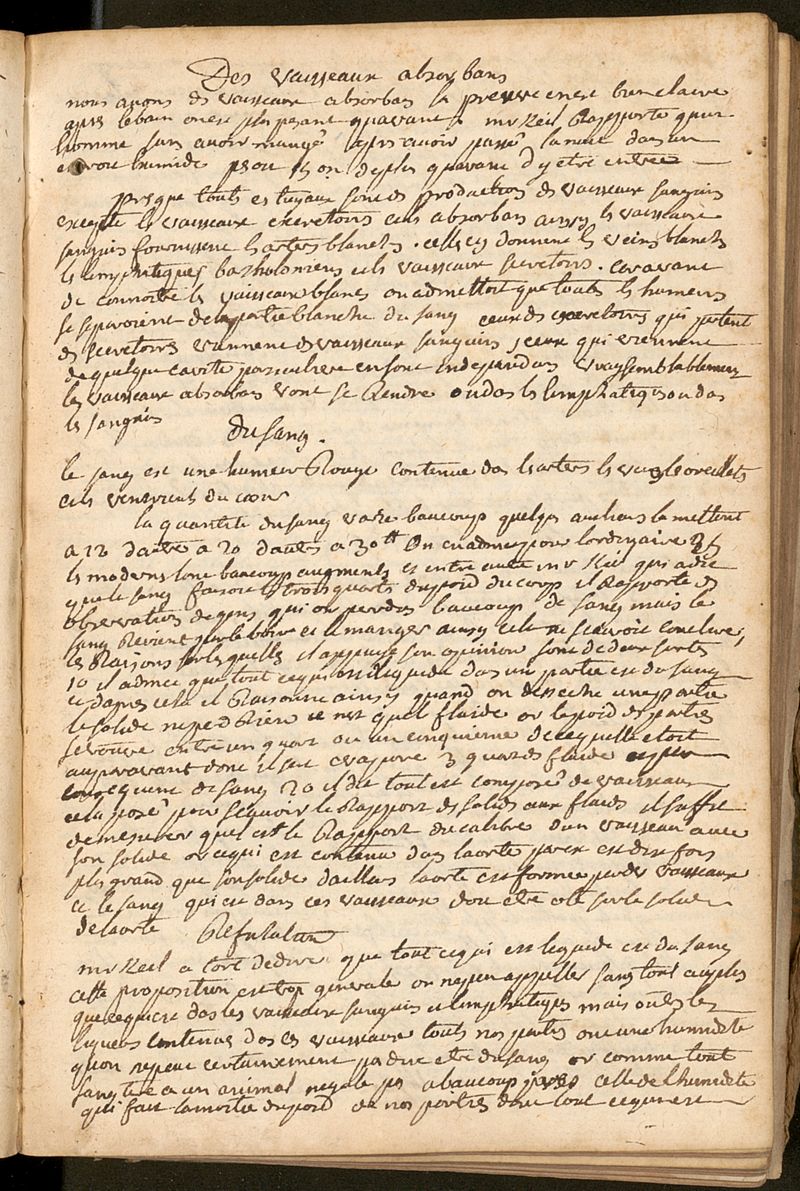 Des vaisseaux absorbans
nous avons des vaisseaux absorbans la preuve en est bien claire
apres le bain on est plus pesant quavant mr Keil Rapporte quun
homme sans avoir mangé apres avoir passé la nuit dans un
humide pesoit de plus quavant dy etre entrée
presque touts tuyaux sont des production des vaisseaux sanguins
excepté les vaisseaux excretoirs et les absorbans ainsy les vaisseaux
sanguins fournissent les arters blanches. celles cy donnent les veins blanches
les limphatiques bartholoniens et les vaisseaux secretoirs. avant
de connoitre les vaisseaux blancs on admettoit que touts les humeurs
se separoient de la partie blanche du sang ceux des excretoirs qui partent
des secretoirs viennent des vaisseaux sanguins, ceux qui viennent
de quelque cavite particuliere en sont independans vraysemblablement
les vaisseaux absorbans vont se Rendre ou dans les limphatiqs ou das
les sanguins
Du sang.
le sang est une humeur Rouge contenue das les arters les veins les oreillets
et les ventricules du coeur
la quantité du sang varie baucoup quelqes anciens la mettent
a 12 dautre a 20 dautes a 30 tt On en admet pour lordinaire 25
les moderns lont baucoup augmenté et entre autre mr Keil qui a dit
que le sang faisoit les trois quarts du poid du corp il Rapporte des
observation de gens qui on perdus baucoup de sang mais le
sang Revient par le boire et le manger ainsy cela ne scauroit conclure,
les Raisons sur lesquelles il appuye son opinion sont de deux sortes
1o il admet que tout ce qui est liquide das un partie est du sang
et dapres cela il Raisonne ainsy quand on desseche une partie
le solide ne perd Rien ce nest que le fluide or le poid des parties
se trouve entre un quart ou un cinquieme de ce quelle etoit
auparavant donc il sest evaporé 3 quarts de fluide et par
consequent de sang 20 il dit tout est composé de vaisseaux
cela posé pour scavoir le Rapport des solids aux fluids il suffit
de mesurer quel est le Rapport du calibre dun vaisseau avec
son solide or ce qui est contenu das laorte par ex est dix fois
plus grand que son solide dailleurs laorte est formée par des vaisseaux
et le sang qui est dans ces vaisseaux doit etre oté sur le solide
de laorte Refutation
mr Keil a tort de dire que tout ce qui est liquide est du sang
cette proposition est trop generale on ne peu appeller sang tout au plus
que ce qui est das les vaisseaux sanguins et limphatiques mais outre les
liqueurs contenues das ces vaisseaux touts nos parties ont une humidité
quon ne peut certainement pas dire etre du sang or comme tout
sang tiré a un animal negale pas a baucoup près celle de lhumidité
qui fait la moitié du poid de nos parties donc tout ce qui nest